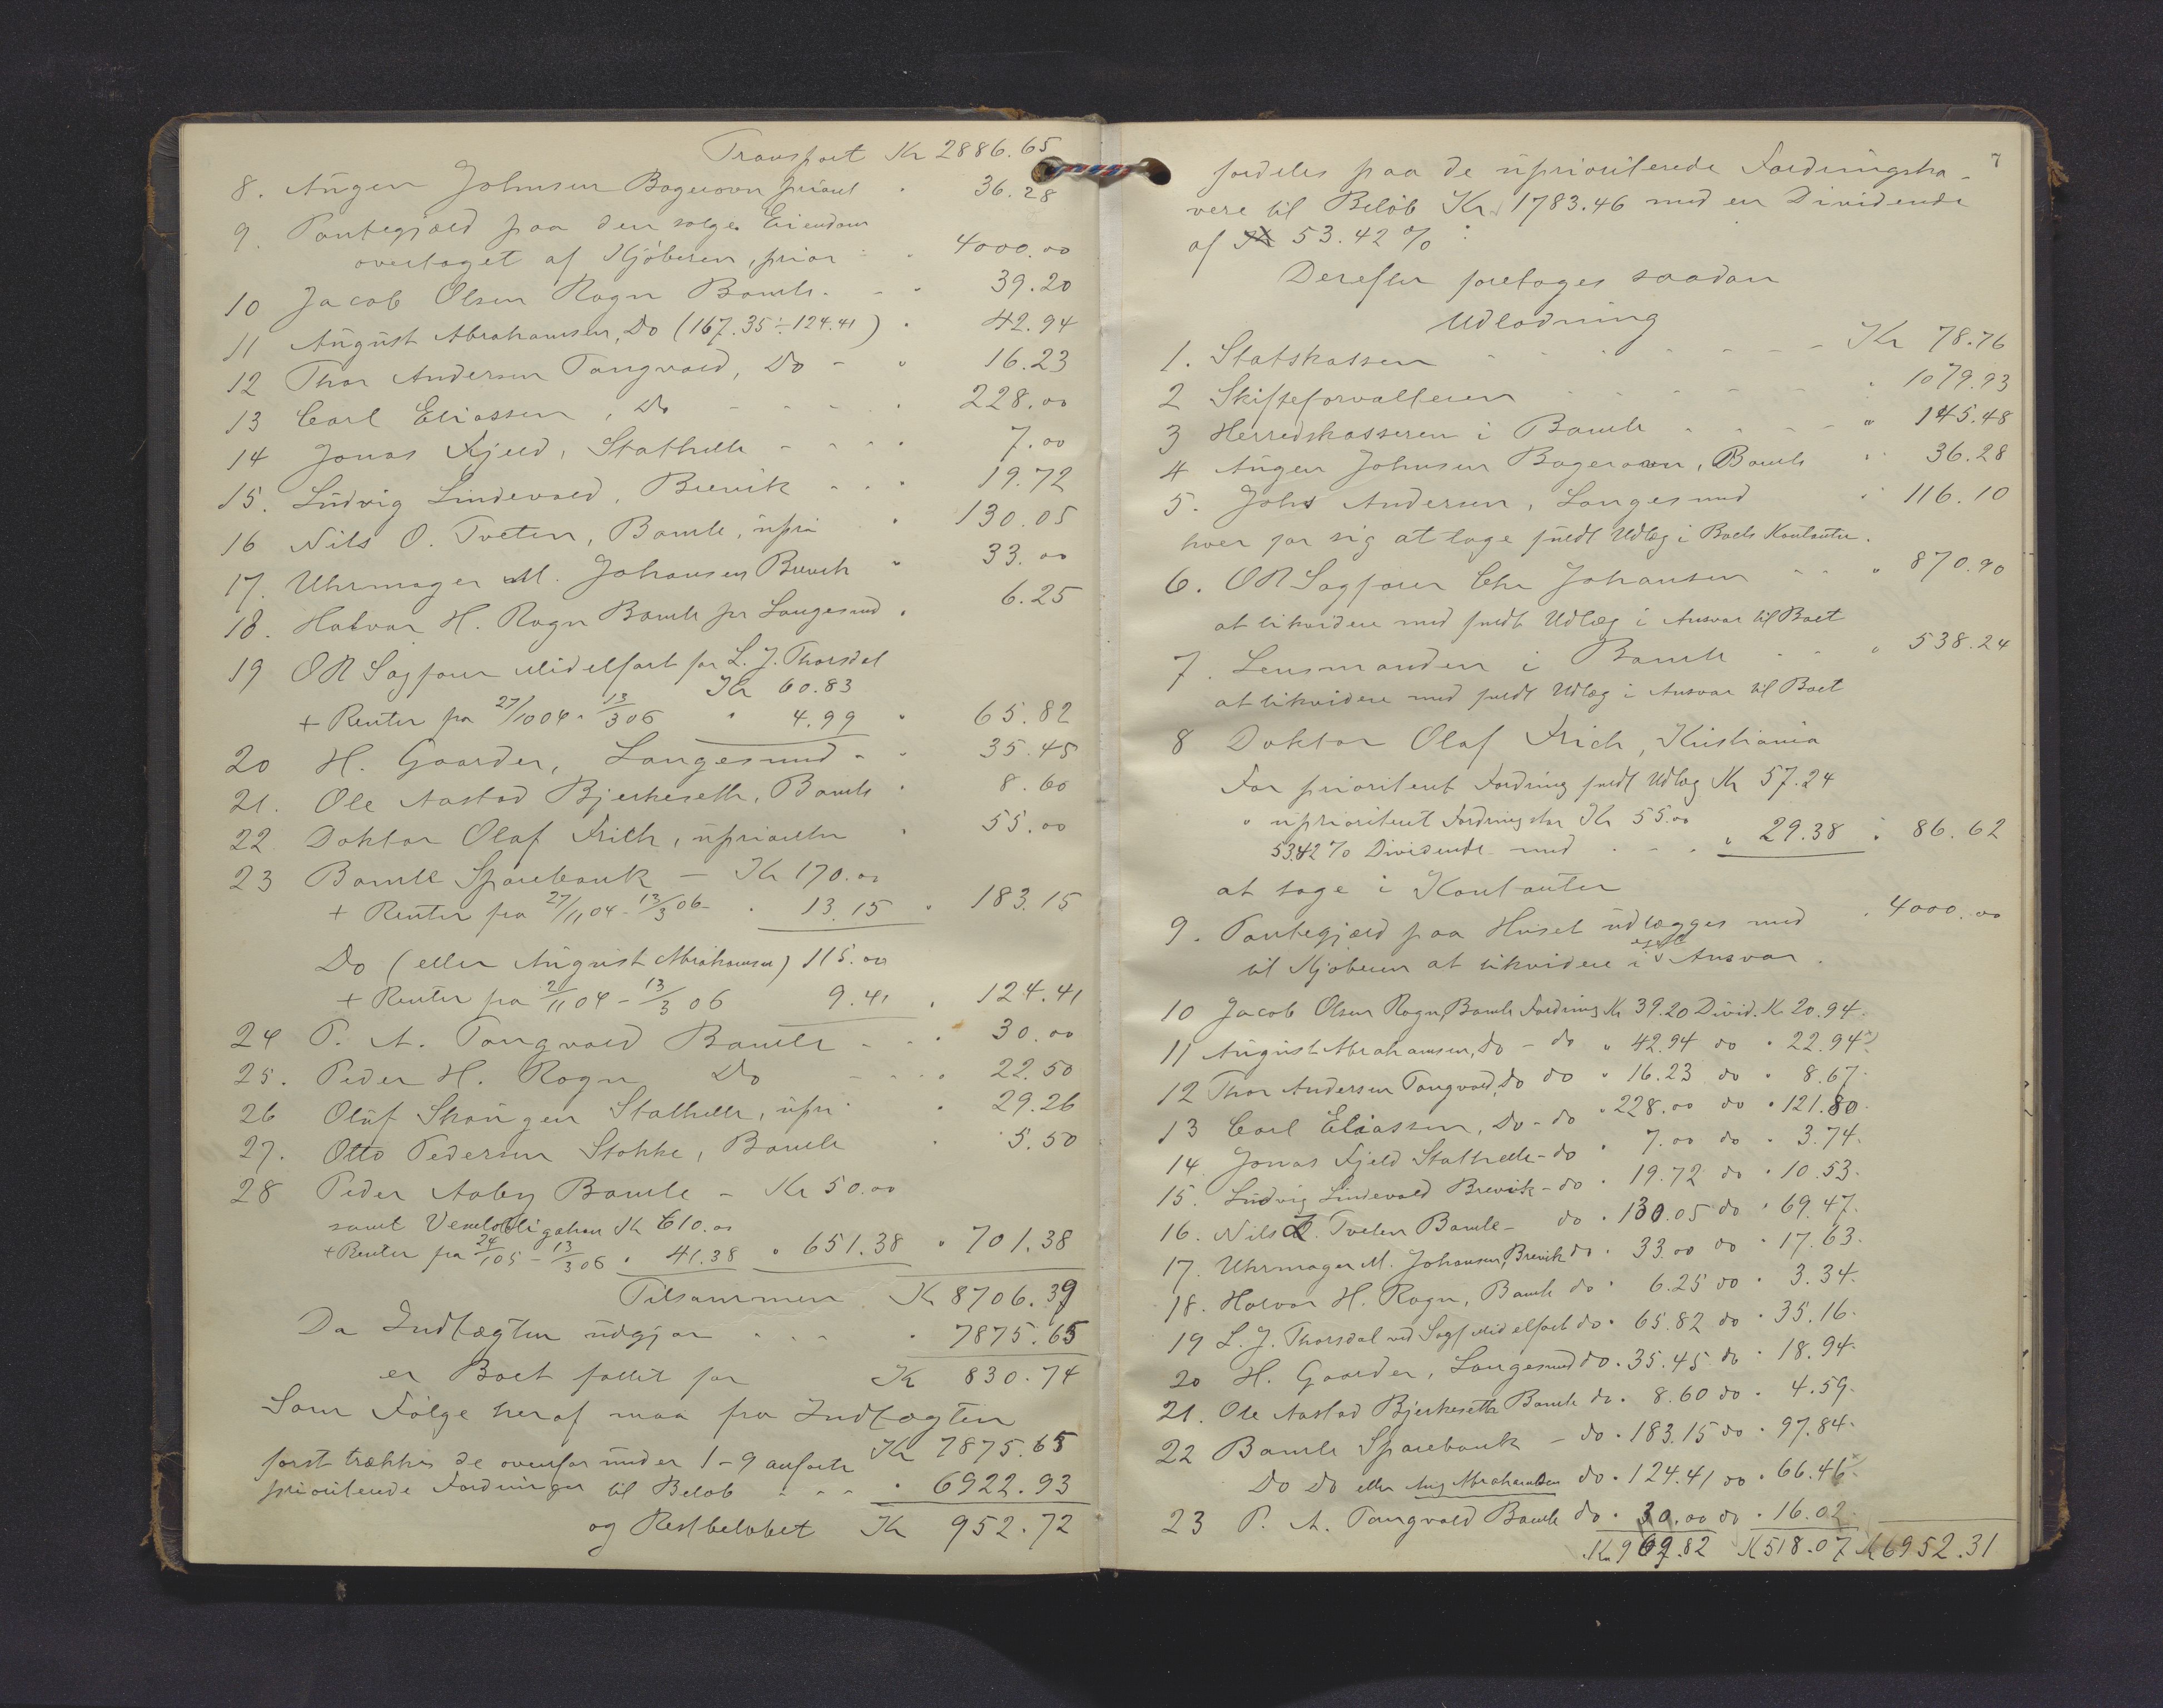 Transport Kr 2886.65
8. Aŭgen Johnsen Bogeraven priorit " 36.28
9. Pantegjæld paa den solgte Eiendom
overtaget af Kjöberen, prior " 4000.00
10 Jacob Olsen Rogn Bamle. - " 39.20
11 Aŭgŭst Abrahamsen, Do (167.35 ÷ 124.41) " 42.94
12 Thor Andersen Tangvald, Do - " 16.23
13 Carl Eliassen, Do - - - " 228.00
14 Jonas Fjeld, Stathelle - - - " 7.00
15. Lŭdvig Lindevald, Brevik - - " 19.72
16 Nils O. Tveten, Bamle, ŭpri " 130.05
17. Uhrmager M. Johansen Brevik " 33.00
18. Halvor H. Rogn Bamle pr Langesund " 6.25
19 OR Sagförer Midelfart for L. J. Thorsdal
Kr 60.83
+ Renter fra 27/10 04 - 13/3 06 " 4.99 " 65.82
20 H. Gaarder, Langesund - " 35.45
21. Ole Aastad Bjerkeseth, Bamle " 8.60
22. Doktor Olaf Frich, ŭprioriter " 55.00
23 Bamle Sparebank - Kr 170.00
+ Renter fra 27/11 04 - 13/3 06 - " 13.15 " 183.15
Do (eller Aŭgŭst Abrahamsen) 115.00
+ Renter fra 2/11 04 - 13/3 06 9.41 " 124.41
24 P. A. Tangvald Bamle - - " 30.00
25. Peder H. Rogn Do - - - " 22.50
26 Olŭf Skaŭgen Stathelle, ŭpri " 29.26
27. Otto Pedersen Stokke, Bamle " 5.50
28 Peder Aaby Bamle - Kr 50.00
samt Vexelobligation Kr 610.00
+ Renter fra 24/1 05 - 13/3 06 " 41.38 " 651.38 " 701.38
Tilsammen Kr 8706.39
Da Indtægten ŭdgjör - - - " 7875.65
er Boet fallit for Kr 830.74
Som Fölge heraf maa fra Indtægten Kr 7875.65
först trækkes de ovenfor ŭnder 1-9 anförte
prioriterede Fordringer til Belöb - - - " 6922.93
og Restbelöbet Kr 952.72
7
fordeles paa de ŭprioriterede Fordringsha-
vere til Belöb Kr 1783.46 med en Dividende
af 53.42 % :
Derefter foretages saadan
Udlodning
1. Statskassen - - - - - - - Kr 78.76
2 Skifteforvalteren - - - - - " 1079.93
3 Herredskasseren i Bamle - - - - " 145.48
4 Aŭgen Johnsen Bogeraven, Bamle " 36.28
5. Johs Andersen, Langesund " 116.10
hver for sig at tage fŭldt Udlæg i Boets Kontanter.
6. OR Sagförer Chr Johansen - - " 870.90
at likvidere med fuldt Udlæg i Ansvar til Boet
7. Lensmanden i Bamle - - " 538.24
at likvidere med fuldt Udlæg i Ansvar til Boet
8 Doktor Olaf Frich, Kristiania
For prioritert Fordring fuldt Udlæg Kr 57.24
" ŭprioritert Fordring stor Kr 55.00
53.42 % Dividende med - - - " 29.38 " 86.62
at tage i Kontanter
9. Pantegjæld paa Huset ŭdlægges med " 4000.00
til Kjöberen at likvidere i eget Ansvar.
10 Jacob Olsen Rogn, Bamle Fordring Kr 39.20 Divid. K 20.94.
11 Aŭgŭst Abrahamsen, do - do " 42.94 do " 22.94
12 Thor Andersen Tangvald, do do " 16.23 do " 8.67.
13 Carl Eliassen, Do - do " 228.00 do " 121.80.
14. Jonas Fjeld Stathelle - do " 7.00 do " 3.74.
15. Lŭdvig Lindevald Brevik - do " 19.72 do " 10.53.
16. Nils O. Tveten Bamle - do " 130.05 do " 69.47.
17. Uhrmager M. Johansen, Brevik do " 33.00 do " 17.63.
18. Halvor H. Rogn, Bamle do " 6.25 do " 3.34.
19 L. J. Thorsdal ved Sagf Midelfart do " 65.82 do " 35.16.
20 H. Gaarder, Langesund do " 35.45 do " 18.94.
21. Ole Aastad Bjerkeseth Bamle do " 8.60 do " 4.59.
22 Bamle Sparebank - do " 183.15 do " 97.84.
Do Do eller Aug Abrahamsen do " 124.41 do " 66.46.
23 P. A. Tangvald Bamle do " 30.00 do " 16.02.
Kr 969.82 K 518.07 K 6952.31